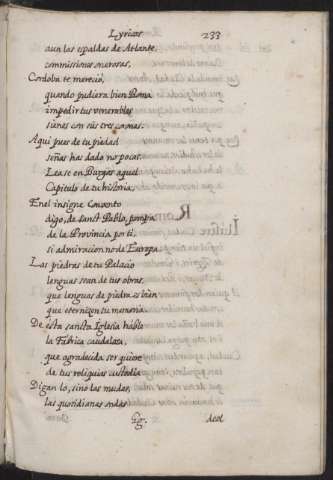 Lyricas 233
aun las espaldas de Atlante,
comissiones onerosas,
Cordoba te mereciò,
quando pudiera bien Roma
impedir tus venerables
sienes con sus tres coronas.
Aqui pues de tu piedad
señas has dado no pocas.
Lease en Burgos aquel
Capitulo de tu historia,
En el insigne Convento
digo, de Sanct Pablo, pompa
de la Provincia por ti,
si admiracion no de Europa
Las piedras de tu Palacio
lenguas sean de tus obras,
que lenguas de piedra es bien
que eternizen tu memoria.
De esta sancta Iglesia hable
la Fabrica caudalosa,
que agradecida ser quiere
de tus reliquias custodia
Digan lo, sino las mudas,
las quotidianas ondas
Gg. deol